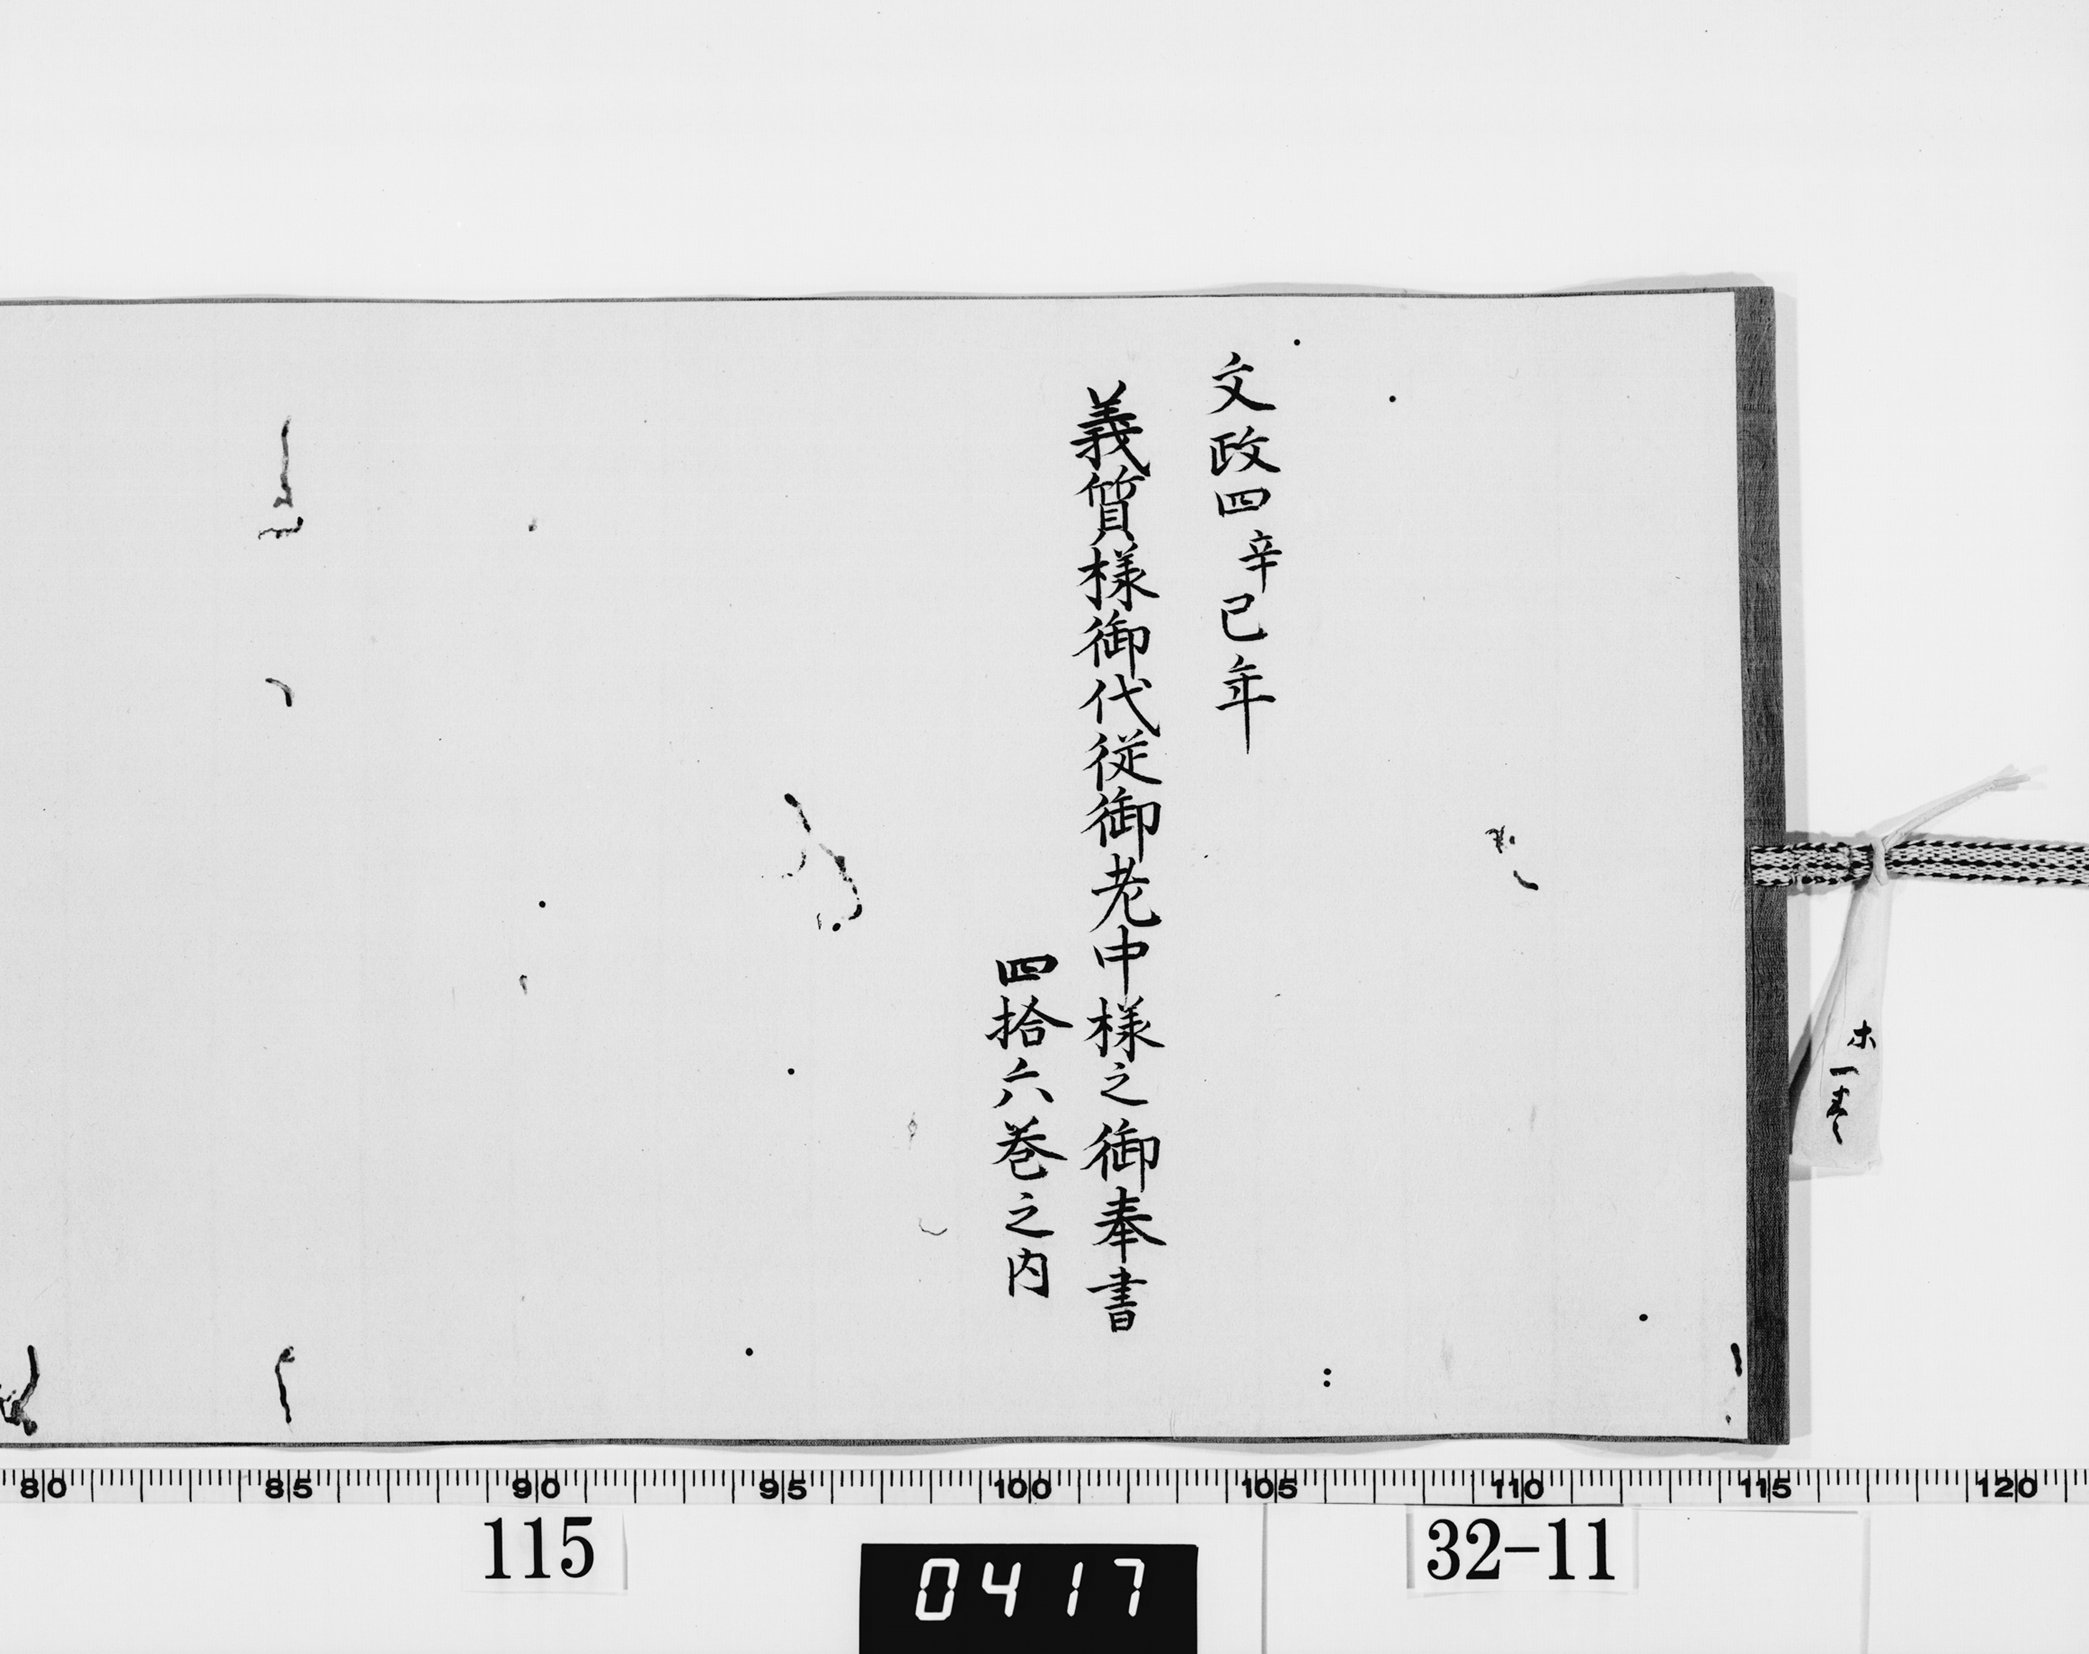 文政四辛巳年
義質様御代従御老中様之御奉書
四拾六巻之内
ホ一巻
80 85 90 95 100 105 110 115 120
115
0417
32-11